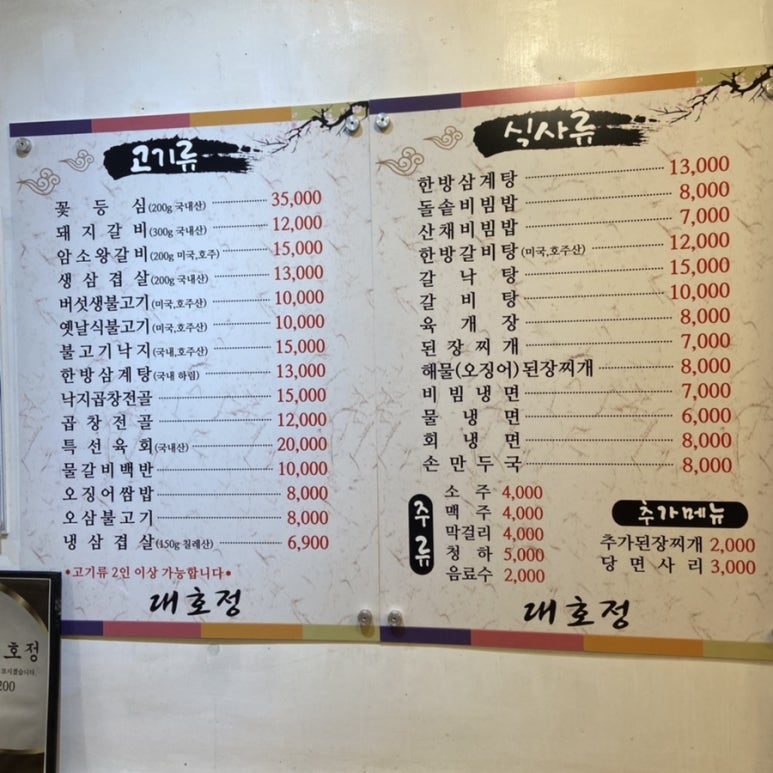 고기류
꽃등심(200g 국내산) 35,000
돼지갈비(300g 국내산) 12,000
암소왕갈비(200g 미국,호주) 15,000
생삼겹살(200g 국내산) 13,000
버섯생불고기(미국,호주산) 10,000
옛날식불고기(미국,호주산) 10,000
불고기낙지(국내,호주산) 15,000
한방삼계탕(국내 하림) 13,000
낙지곱창전골 15,000
곱창전골 12,000
특선육회(국내산) 20,000
물갈비백반 10,000
오징어쌈밥 8,000
오삼불고기 8,000
냉삼겹살(150g 칠레산) 6,900
•고기류 2인 이상 가능합니다•
대호정
식사류
한방삼계탕 13,000
돌솥비빔밥 8,000
산채비빔밥 7,000
한방갈비탕(미국,호주산) 12,000
갈낙탕 15,000
갈비탕 10,000
육개장 8,000
된장찌개 7,000
해물(오징어)된장찌개 8,000
비빔냉면 7,000
물냉면 6,000
회냉면 8,000
손만두국 8,000
주류
소주 4,000
맥주 4,000
막걸리 4,000
청하 5,000
음료수 2,000
추가메뉴
추가된장찌개 2,000
당면사리 3,000
대호정
호정
모시겠습니다.
200